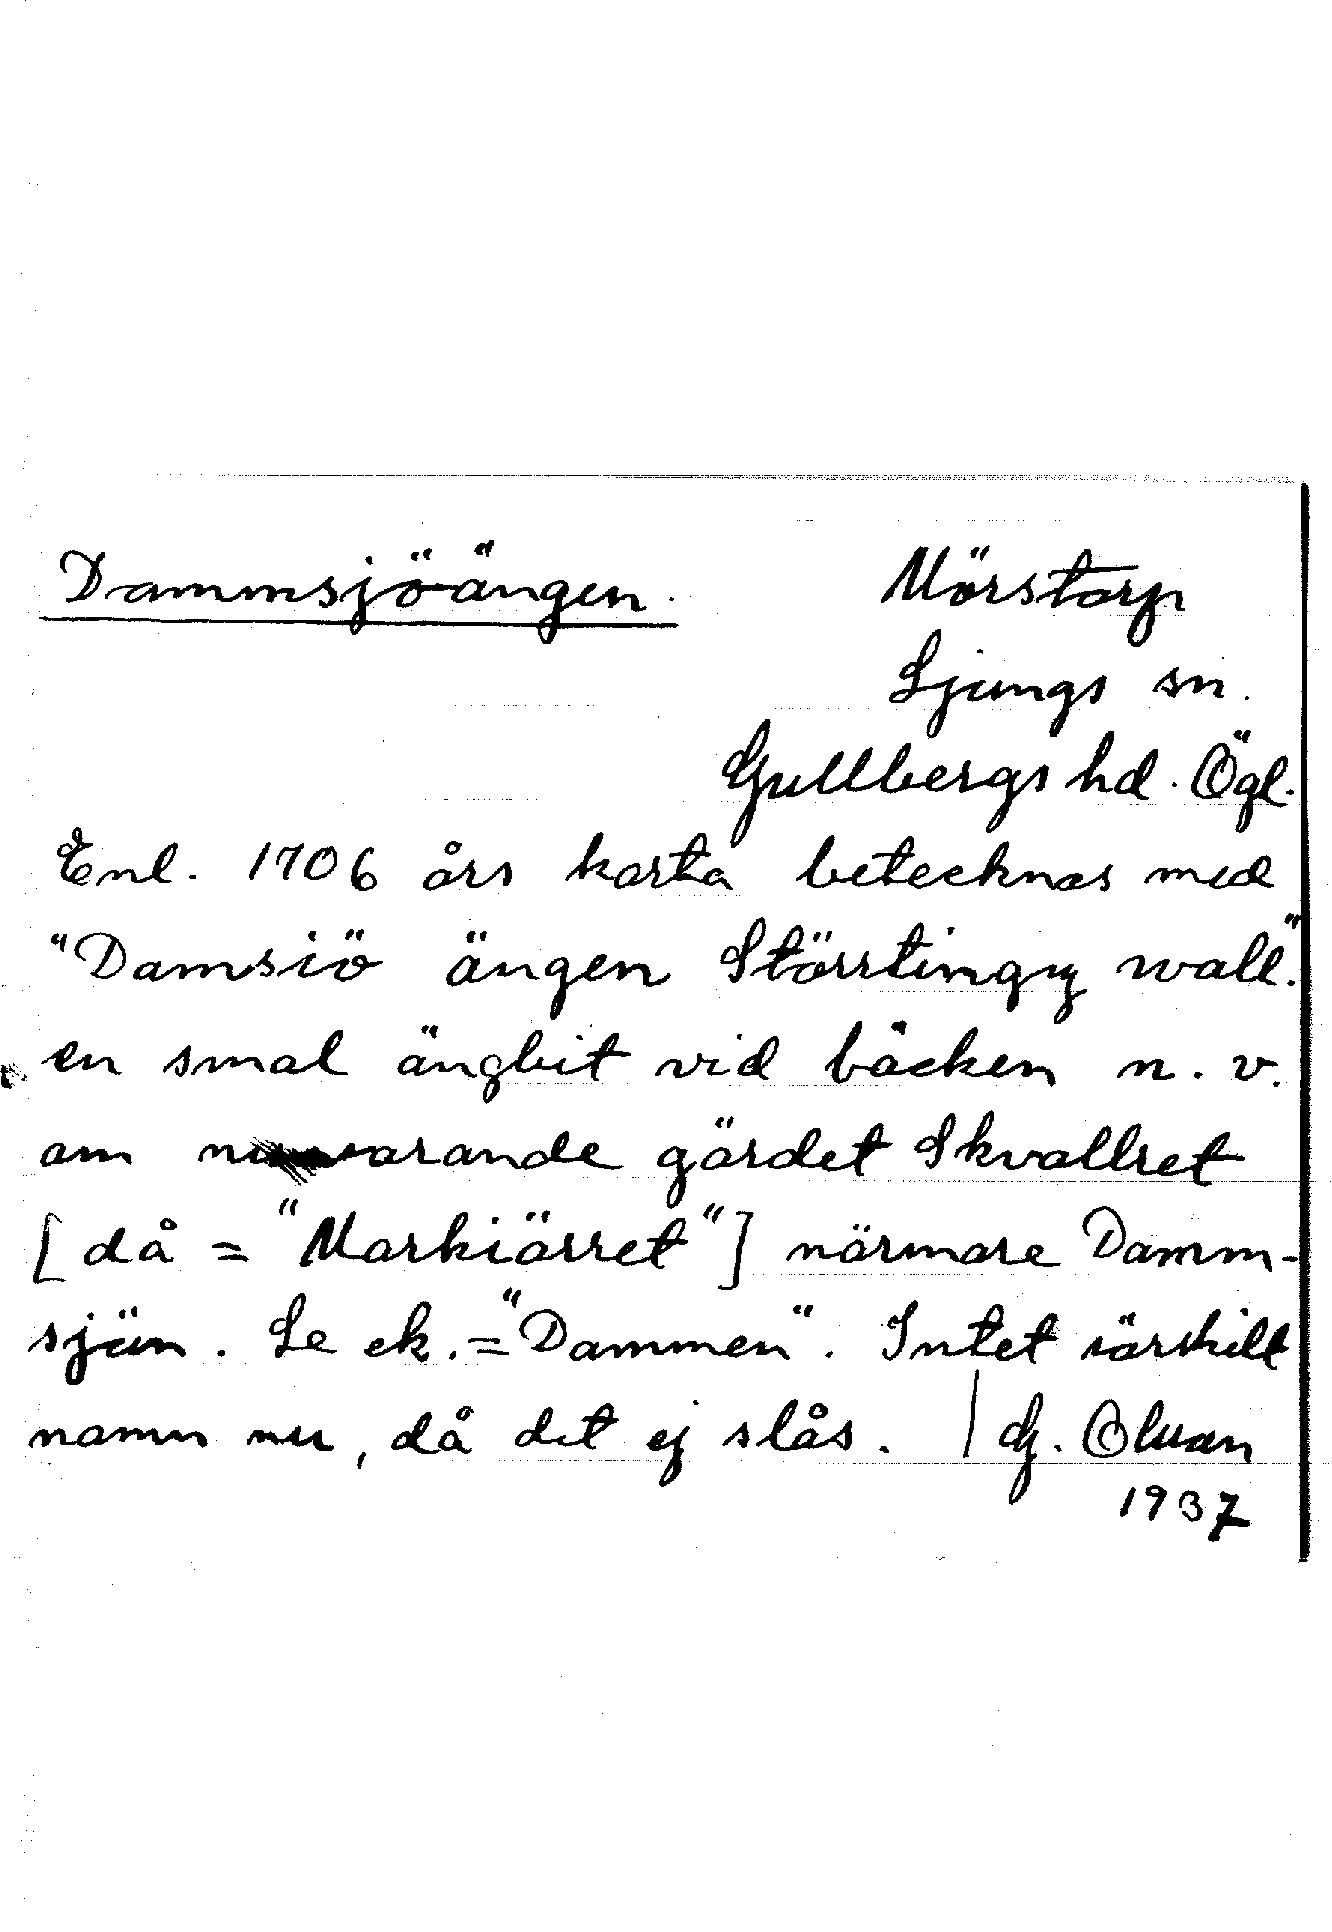 Dammsjöängen.
Mörstorp
Ljungs sn.
Gullbergs hd. Ögl.
Enl. 1706 års karta betecknas med
"Damsiö ängen Störrtingz wall."
en smal ängbit vid bäcken n. v.
om nuvarande gärdet Skvallret
[då = "Markiärret"] närmare Damm-
sjön. Se ek. = "Dammen". Intet särskilt
namn nu, då det ej slås.
1937